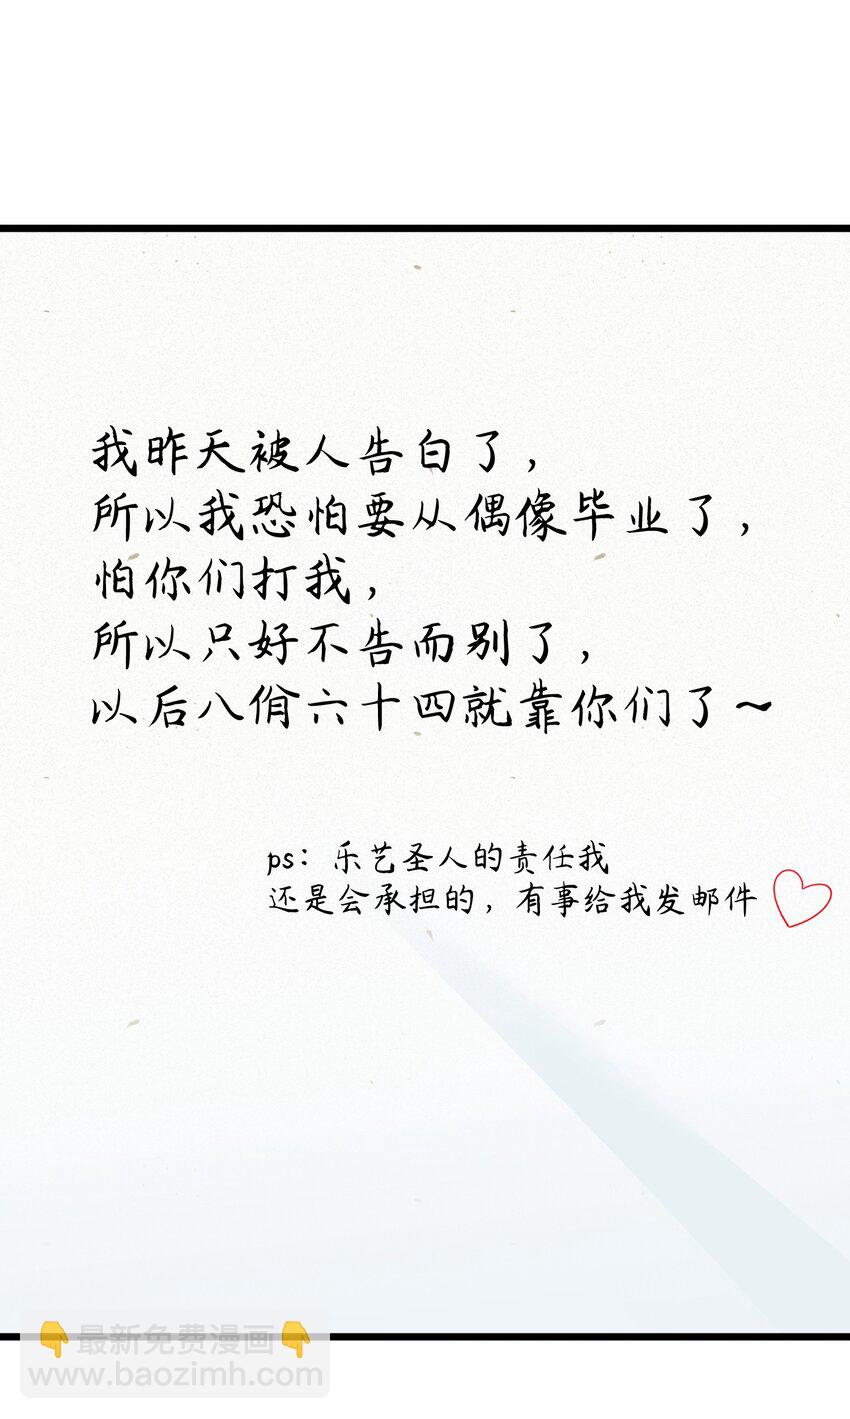 我昨天被人告白了，
所以我恐怕要从偶像毕业了，
怕你们打我，
所以只好不告而别了，
以后八佾六十四就靠你们了～
ps：乐艺圣人的责任我
还是会承担的，有事给我发邮件
最新免费漫画
www.baozimh.com